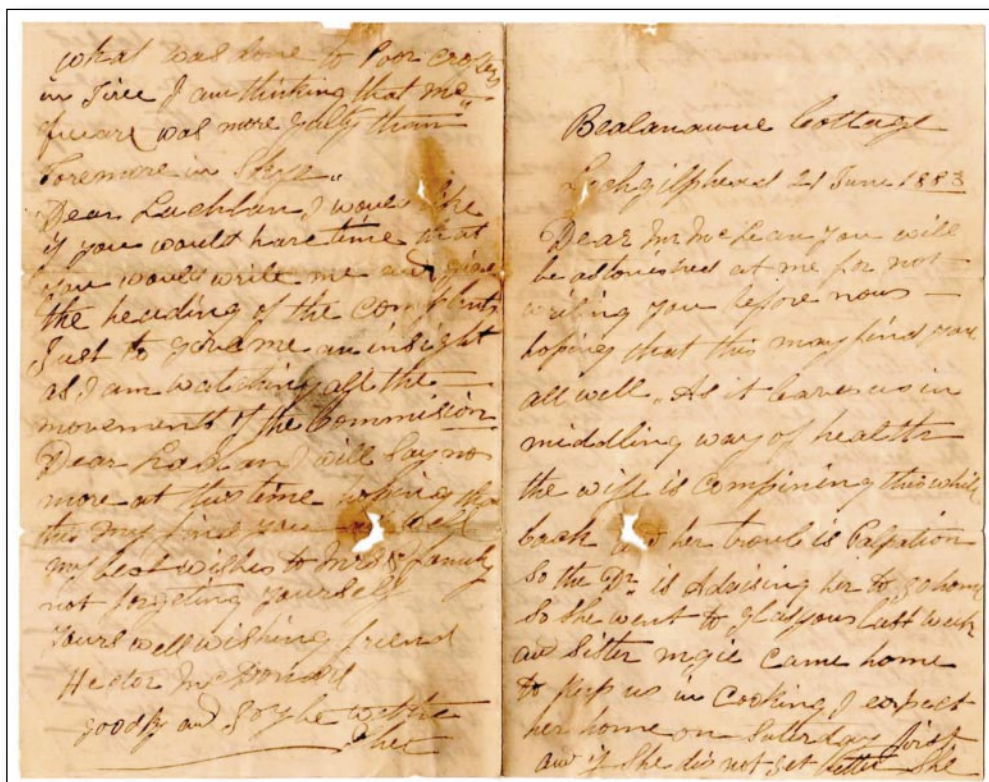 what was done to Poor crofters
in Tiree I am thinking that me"
was more galty than
in Skye"
Dear Lachlan I would like
if you would have time that
you would write me and give
the heading of the
Just to give me an insight
as I am watching all the
movements of the Commision
Dear I will say no
more at this time hoping
this my find you well
my best wishes to Mrs & family
not forgeting yourself
yours well wishing friend
Hector McDonald
goodby and be with

Bealanawne Cottage
Lochgilphead 21 June 1883
Dear Mr McLean you will
be astonished at me for not
writing you before now
hoping that this may find you
all well. As it leaves us in
middling way of health
the wife is compining this while
back and her troul is Palpation
So the Dr. is Advising her to go home
so she went to last week
and Sister came home
to keep us in Cooking I expect
her home on Saturday first
and if She dis not get better She